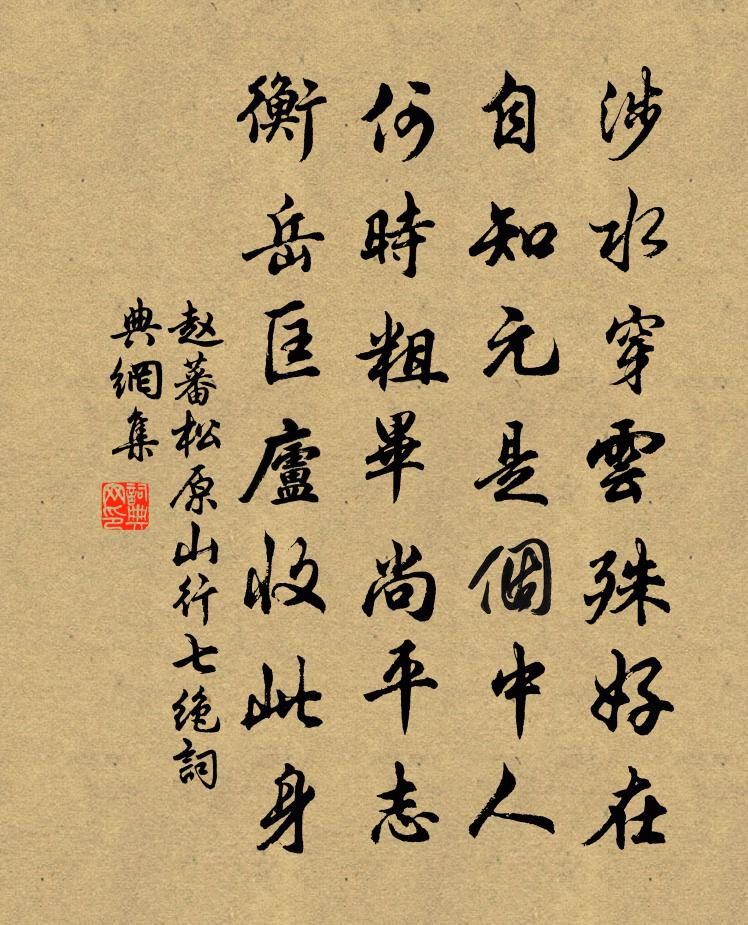 涉水穿雲殊好在
自知元是個中人
何時粗畢尚平志
衡岳匡廬收此身
赵蕃松原山行七绝詞
典網集
詞典
网印